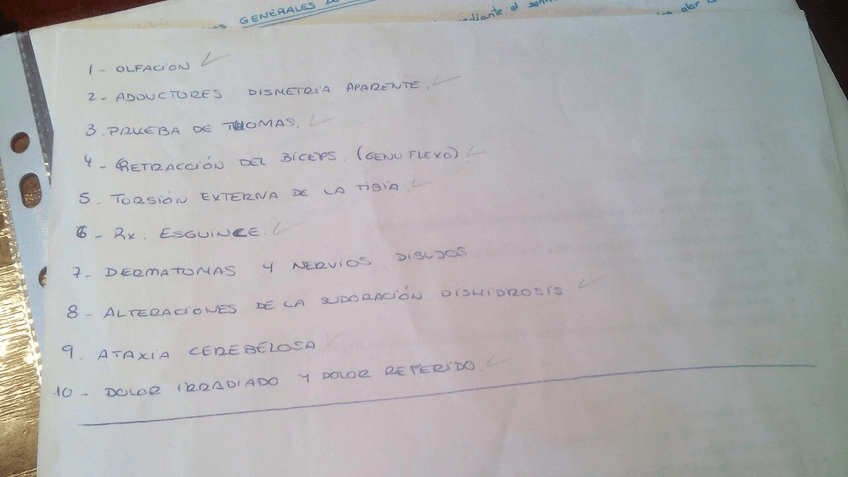 GENERALES
mediante el
1 - OLFACION
2 - ADDUCTORES. DISMETRÍA APARENTE.
3. PRUEBA DE THOMAS.
4 - RETRACCIÓN DEL BÍCEPS. (GENU FLEXO)
5. TORSIÓN EXTERNA DE LA TIBIA.
6 - RX. ESGUINCE.
7 - DERMATOMAS Y NERVIOS. DIBUJOS
8 - ALTERACIONES DE LA SUDORACIÓN. DISHIDROSIS
9. ATAXIA CEREBELOSA
10 - DOLOR IRRADIADO Y DOLOR REFERIDO.